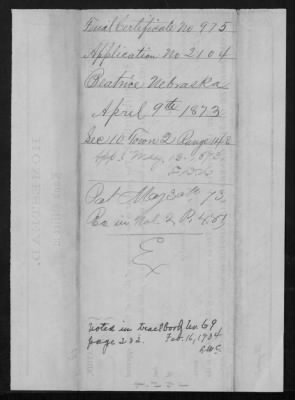 Final Certificate No 975
Application No 2104
Beatrice Nebraska
April 9th 1873
Sec 10 Town 2 Range 14 E
May 13
Pat May 30th 73
Rec in Vol 2, P. 451
E
Noted in tract book Vo. 69
page 232. Feb. 16, 1934
HOMESTEAD.